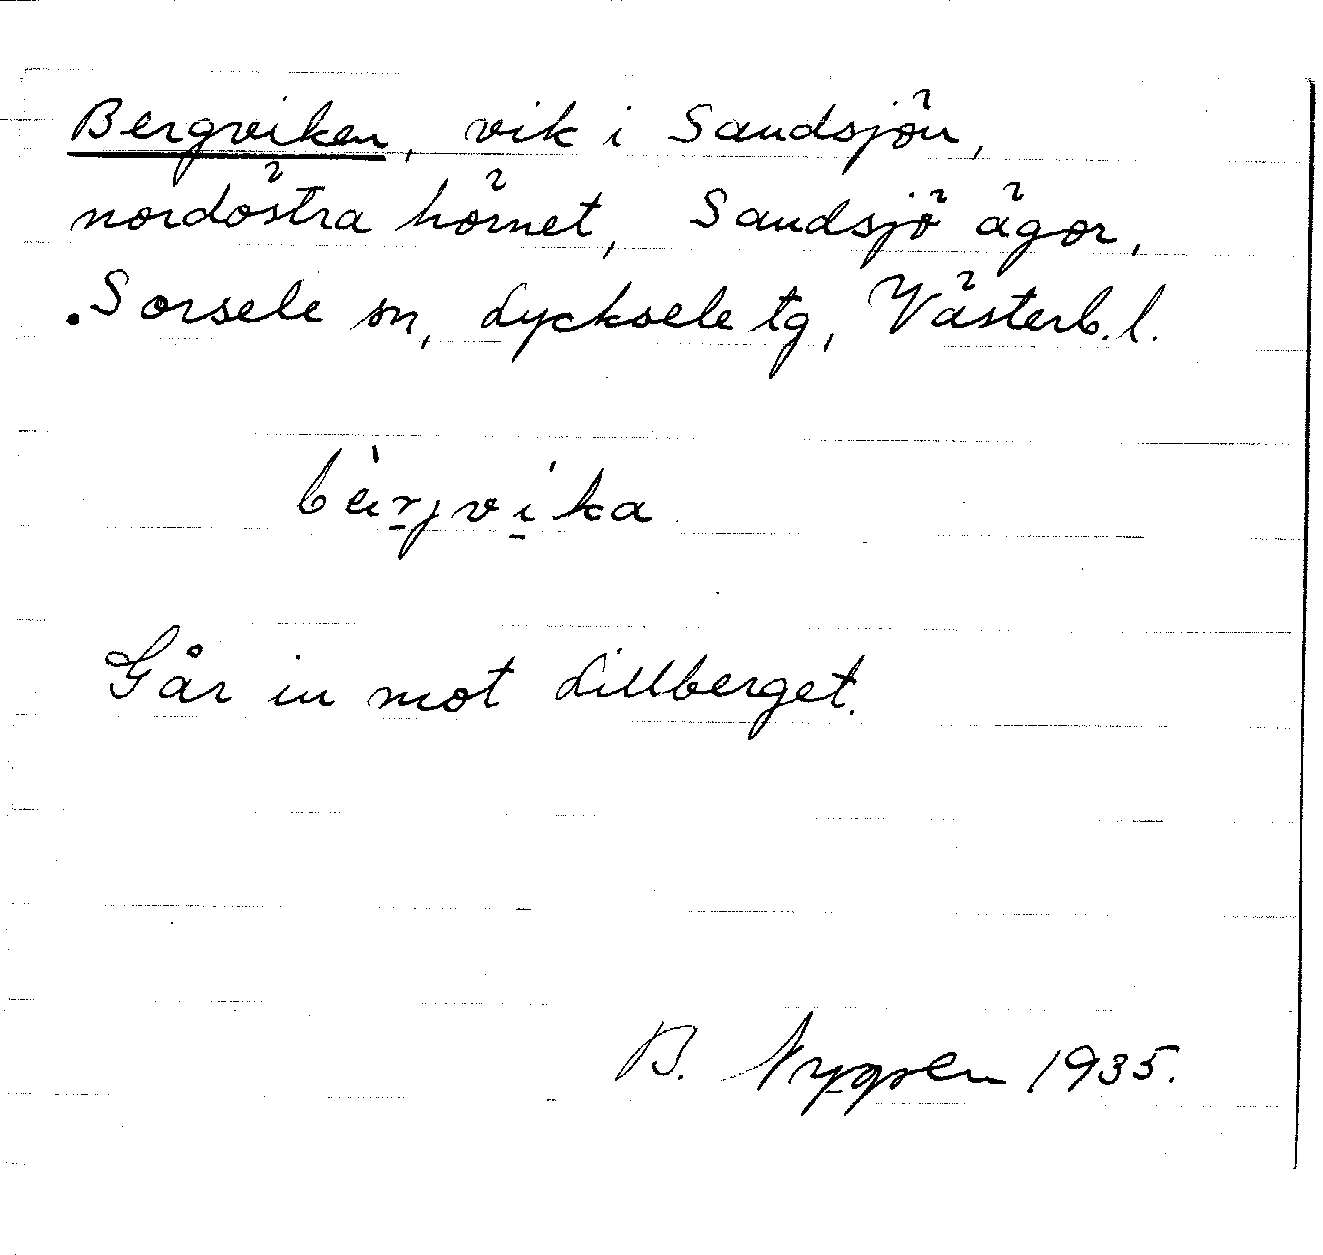 Bergviken, vik i Sandsjön,
nordöstra hörnet, Sandsjö ägor,
Sorsele sn, Lycksele tg, Västerb. l.
bèrjvíka
Går in mot Lillberget.
B. Nygren 1935.